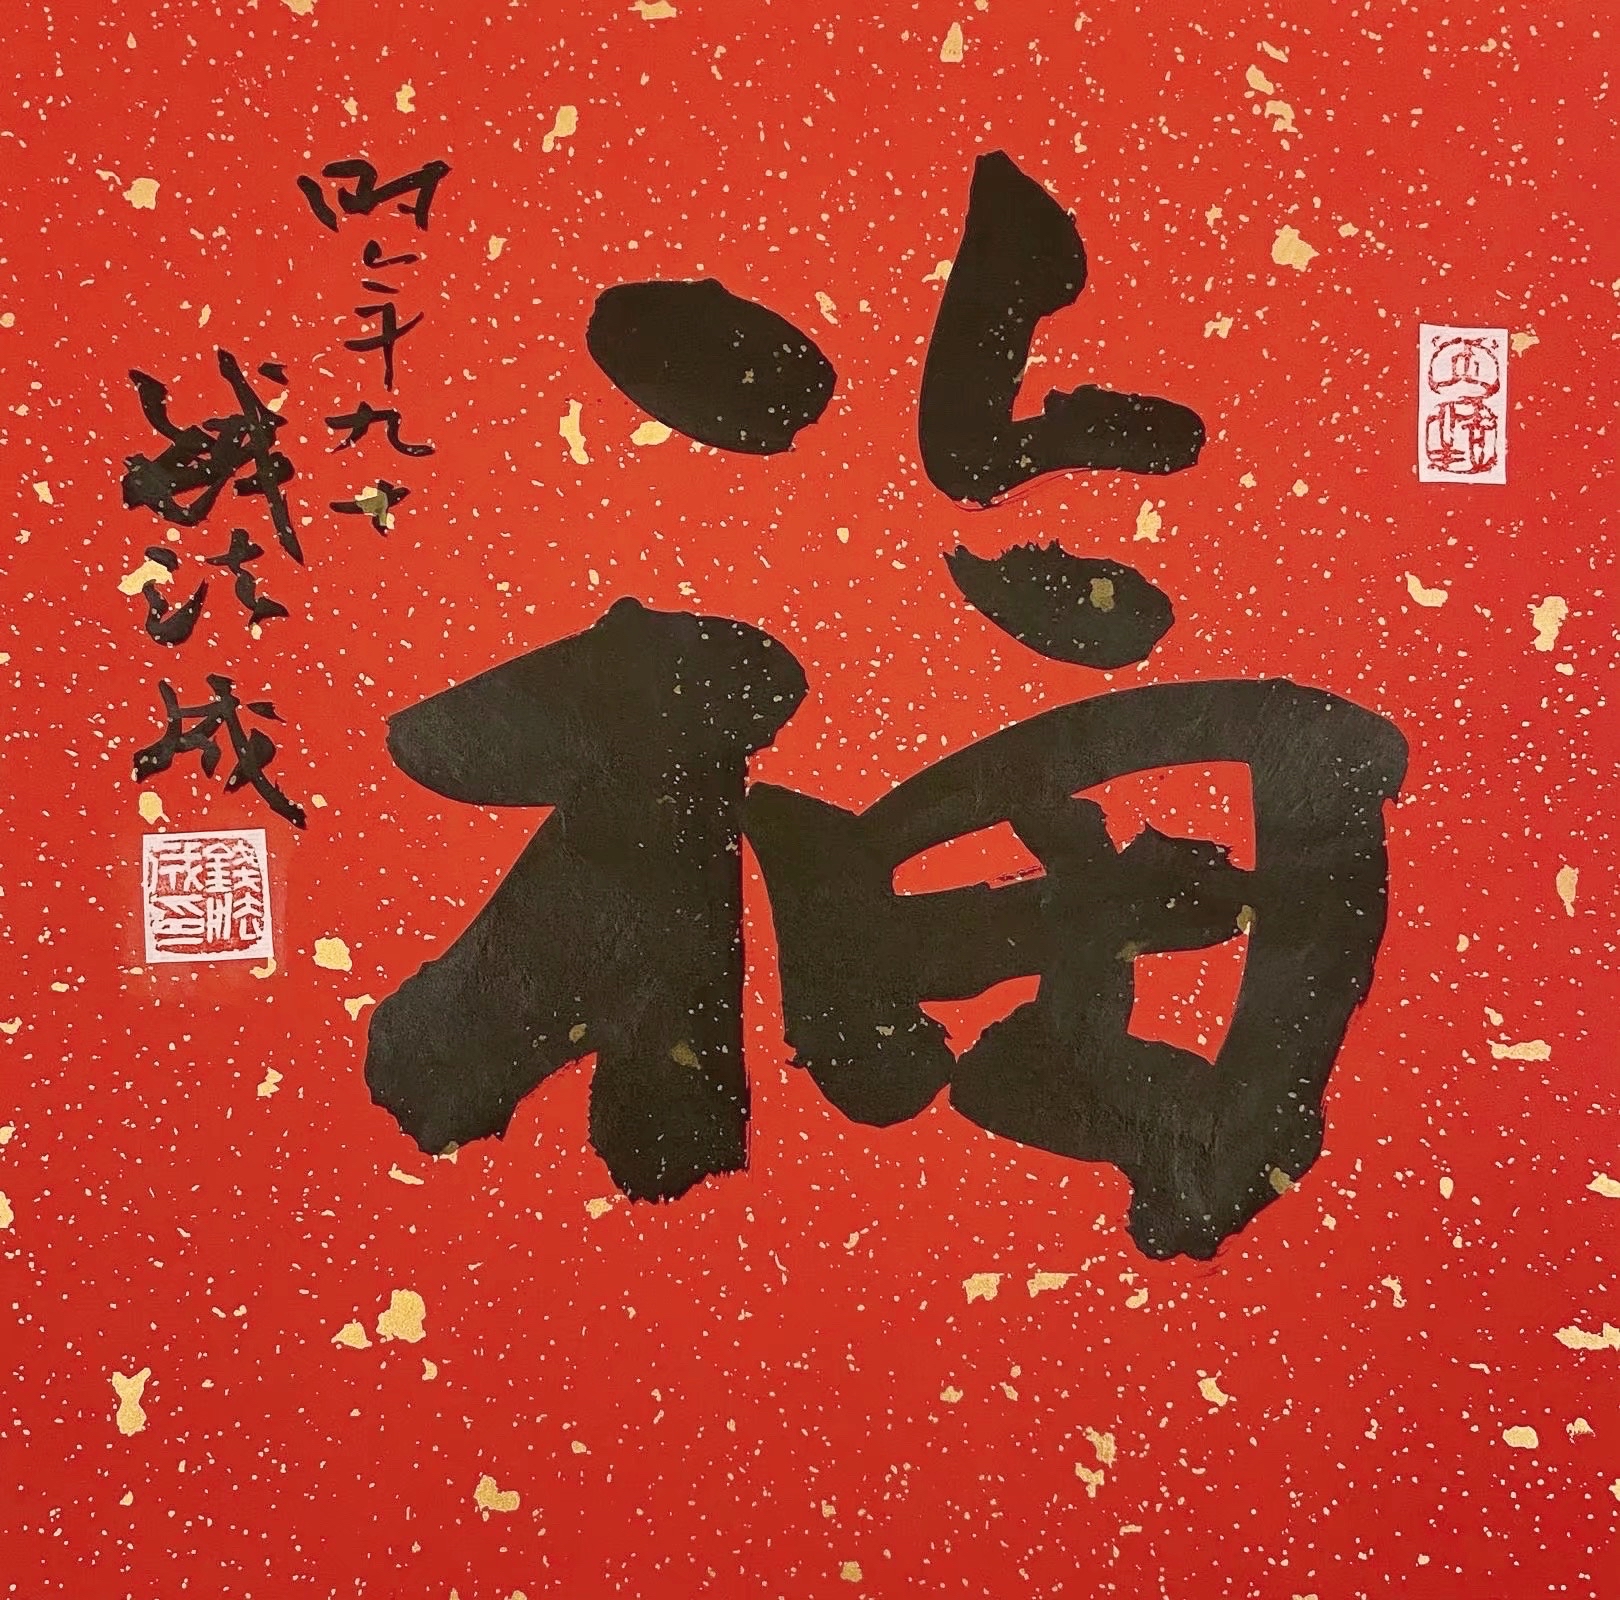 福
时年九十
钱法成
錢法成印